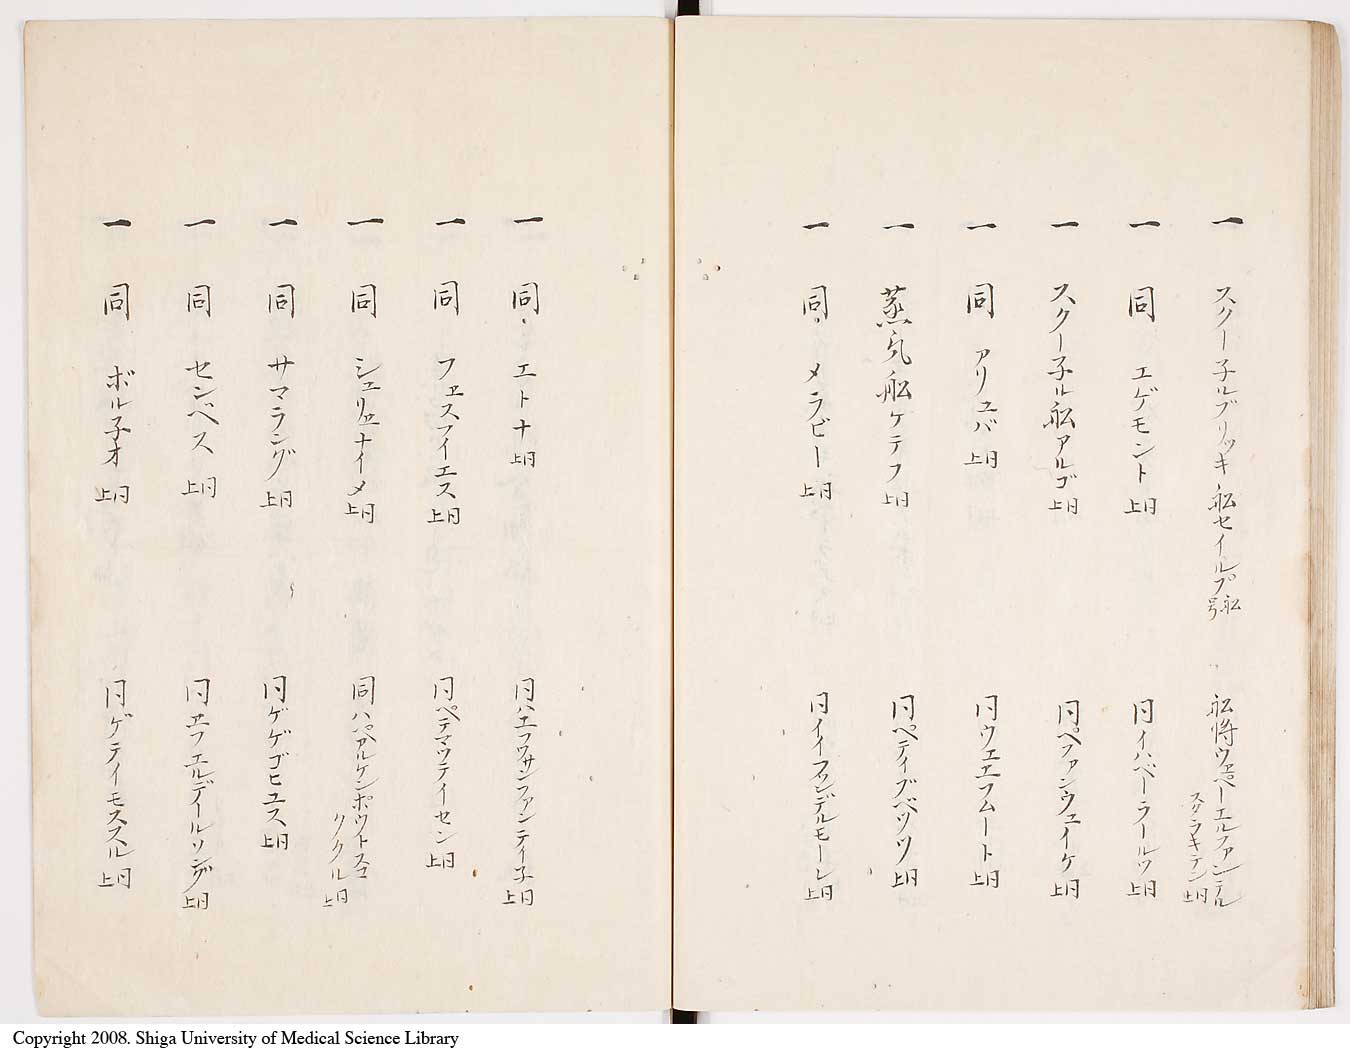 一 スクー子ルブリッキ舩セイルプ舩号 舩将ウェペーエルファンデルスクラキテン同上
一 同 エゲモント 同上 同イハベーラールツ同上
一 スクー子ル舩アルゴ 同上 同ペファンウェイケ同上
一 同 アリュバ 同上 同ウェエフムート同上
一 蒸気舩ケテフ 同上 同ペテイブベツツ同上
一 同 メラビー 同上 同イイファンデルモーレ同上
一 同 エトナ 同上 同ハエフワサンファンテイ子同上
一 同 フェスフイエス 同上 同ペテマウテイーセン同上
一 同 シュリナイメ 同上 同ハパアルケンボウトスコククル同上
一 同 サマラング 同上 同ゲゲゴヒユス同上
一 同 センベス 同上 同エフエルデイールリング同上
一 同 ボル子オ 同上 同ゲテイモススル同上
Copyright 2008. Shiga University of Medical Science Library